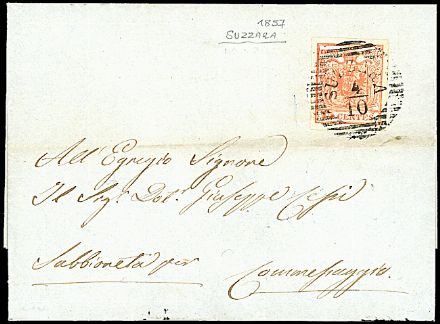 1857
SUZZARA
SUZZARA
4
10
CENTES
All'Egregio Signore
Il Sigr Dotr Giuseppe
Sabbioneta per Commessaggio